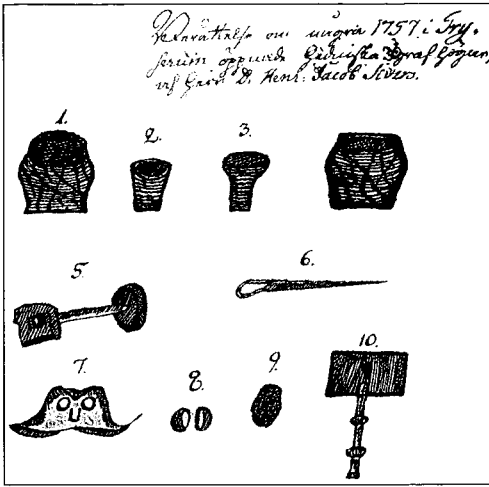 Berättelse om några 1757. i Try-
serum öppnade Hedniska Graf högar,
af Herr D. Henr: Jacob Sivers.
1.
2.
3.
5.
6.
7.
8.
9.
10.